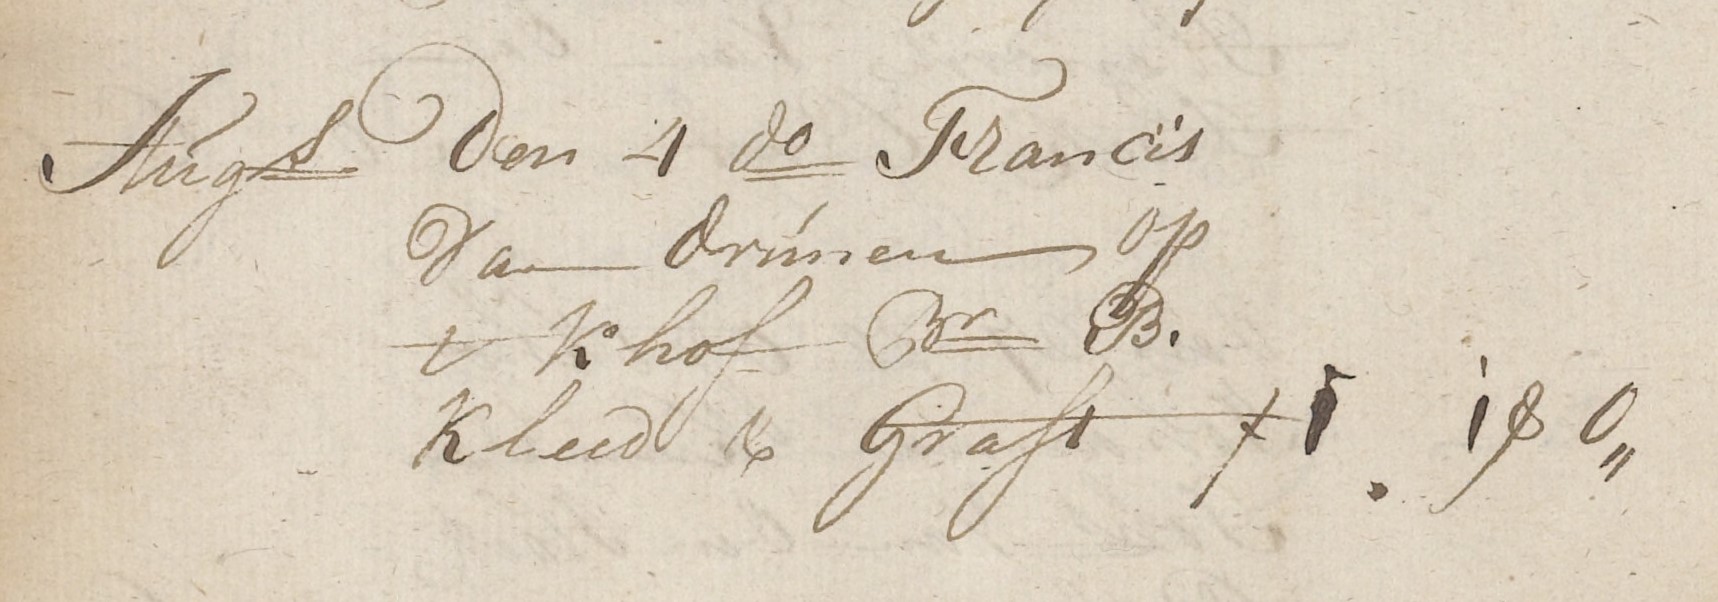 Augs Den 4 do Francis
Van Drunen op
t Khof Br B.
Kleed & Graft f 1. 18 0„